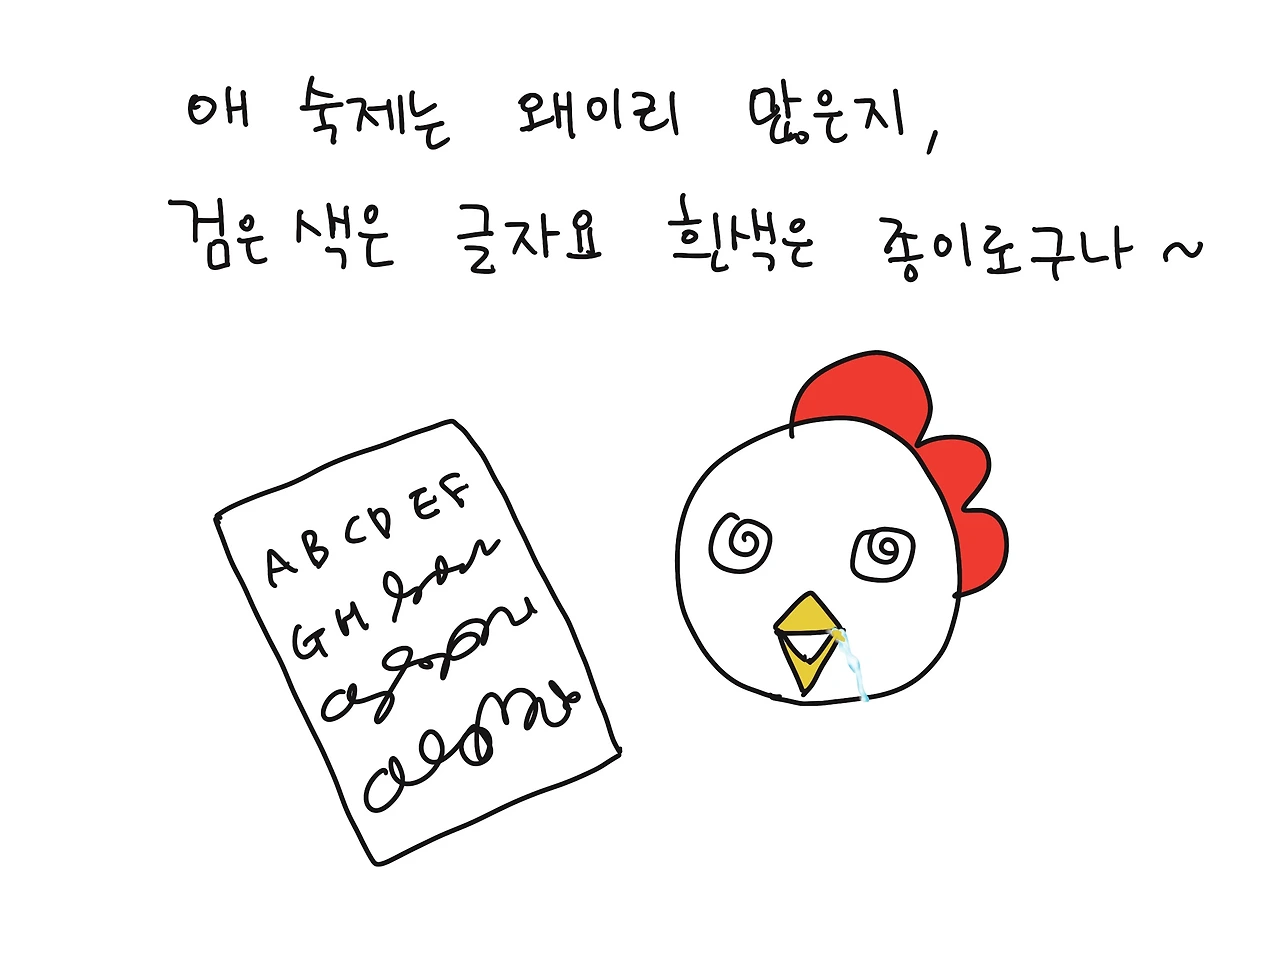 애 숙제는 왜이리 많은지,
검은 색은 글자요 흰색은 종이로구나 ~
A B C D E F
G H